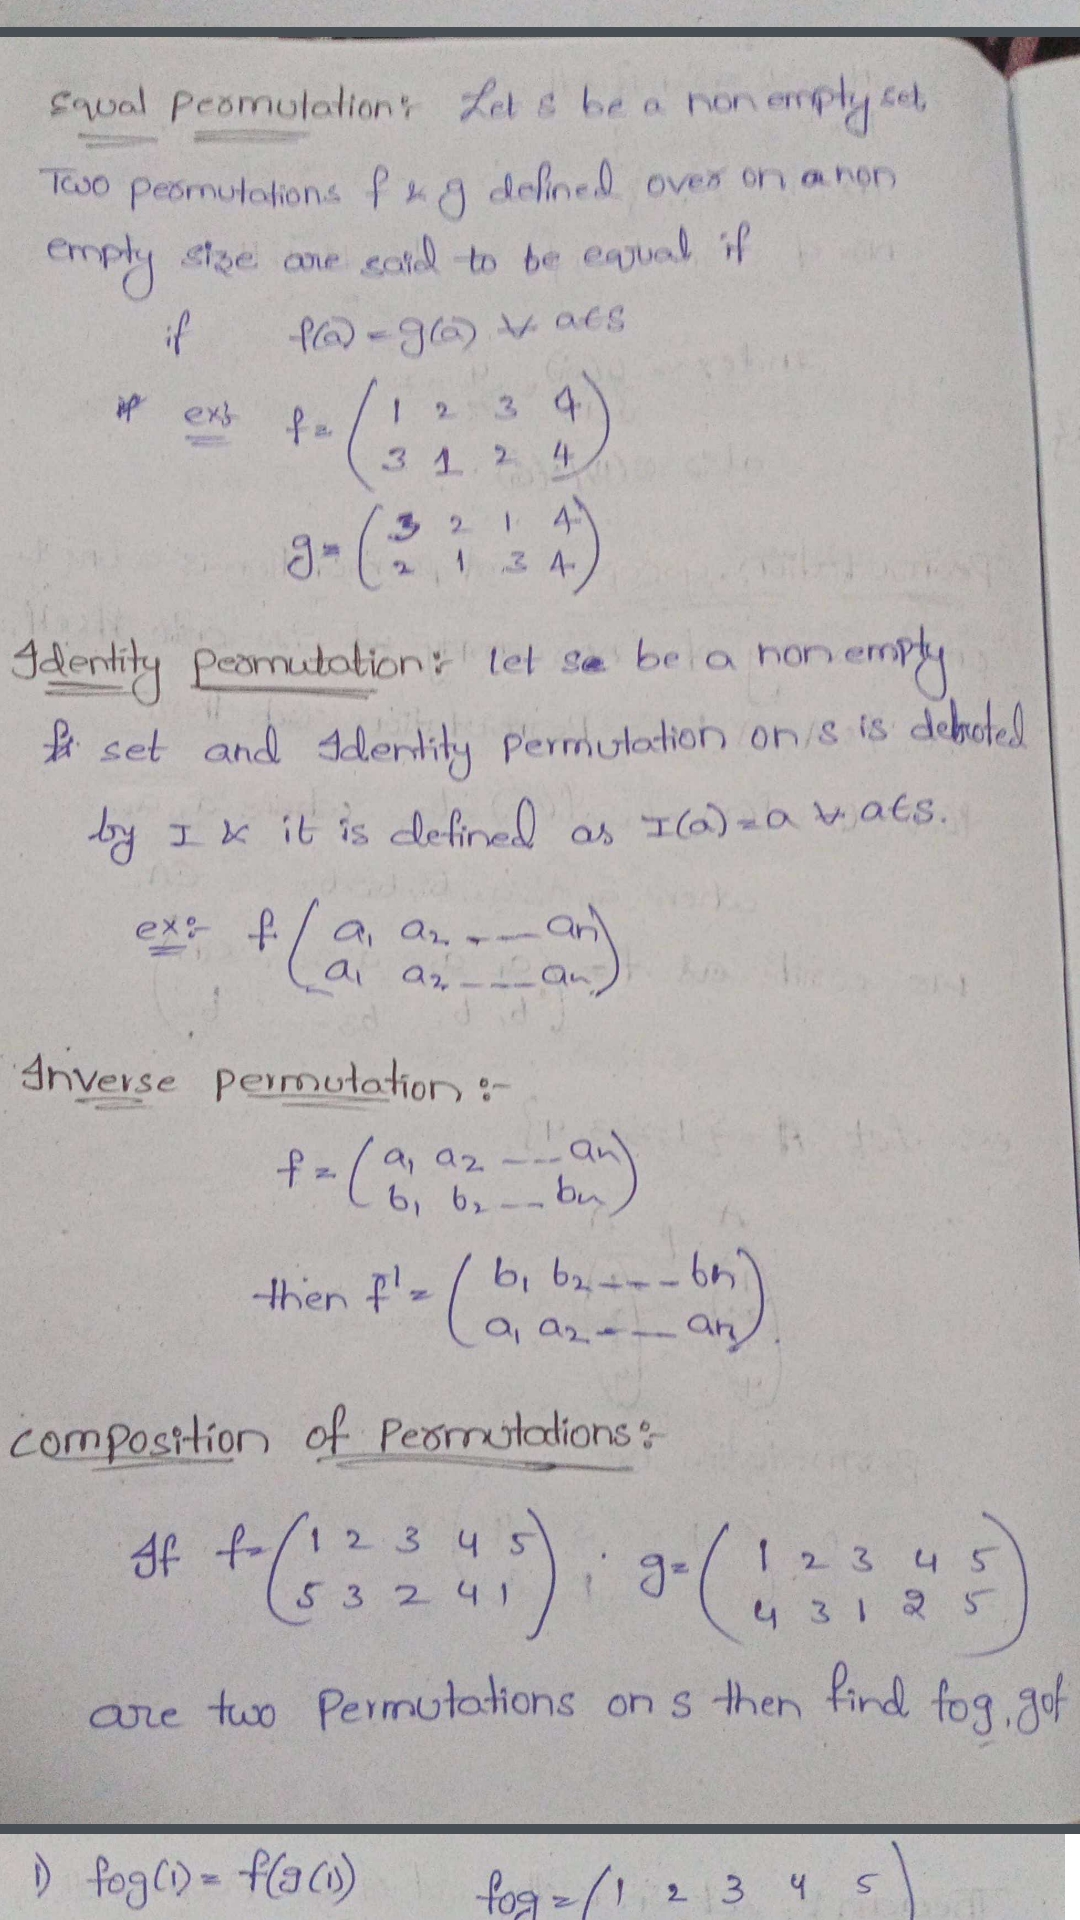 Equal Permutation:- Let S be a non empty set.
Two permutations f & g defined over on a non
empty size are said to be equal if
if f(a) = g(a) ∀ a∈S
ex:- f = ( 1 2 3 4 )
( 3 1 2 4 )
g = ( 3 2 1 4 )
( 2 1 3 4 )
Identity permutation:- let S be a non empty
set and Identity Permutation on S is denoted
by I & it is defined as I(a) = a ∀ a∈S.
ex:- f ( a₁ a₂ --- an )
( a₁ a₂ --- an )
Inverse permutation :-
f = ( a₁ a₂ --- an )
( b₁ b₂ --- bn )
then f⁻¹ = ( b₁ b₂ --- bn )
( a₁ a₂ --- an )
composition of Permutations:-
If f = ( 1 2 3 4 5 ) ; g = ( 1 2 3 4 5 )
( 5 3 2 4 1 ) ( 4 3 1 2 5 )
are two Permutations on S then find fog, gof
1) fog(1) = f(g(1)) fog = ( 1 2 3 4 5 )